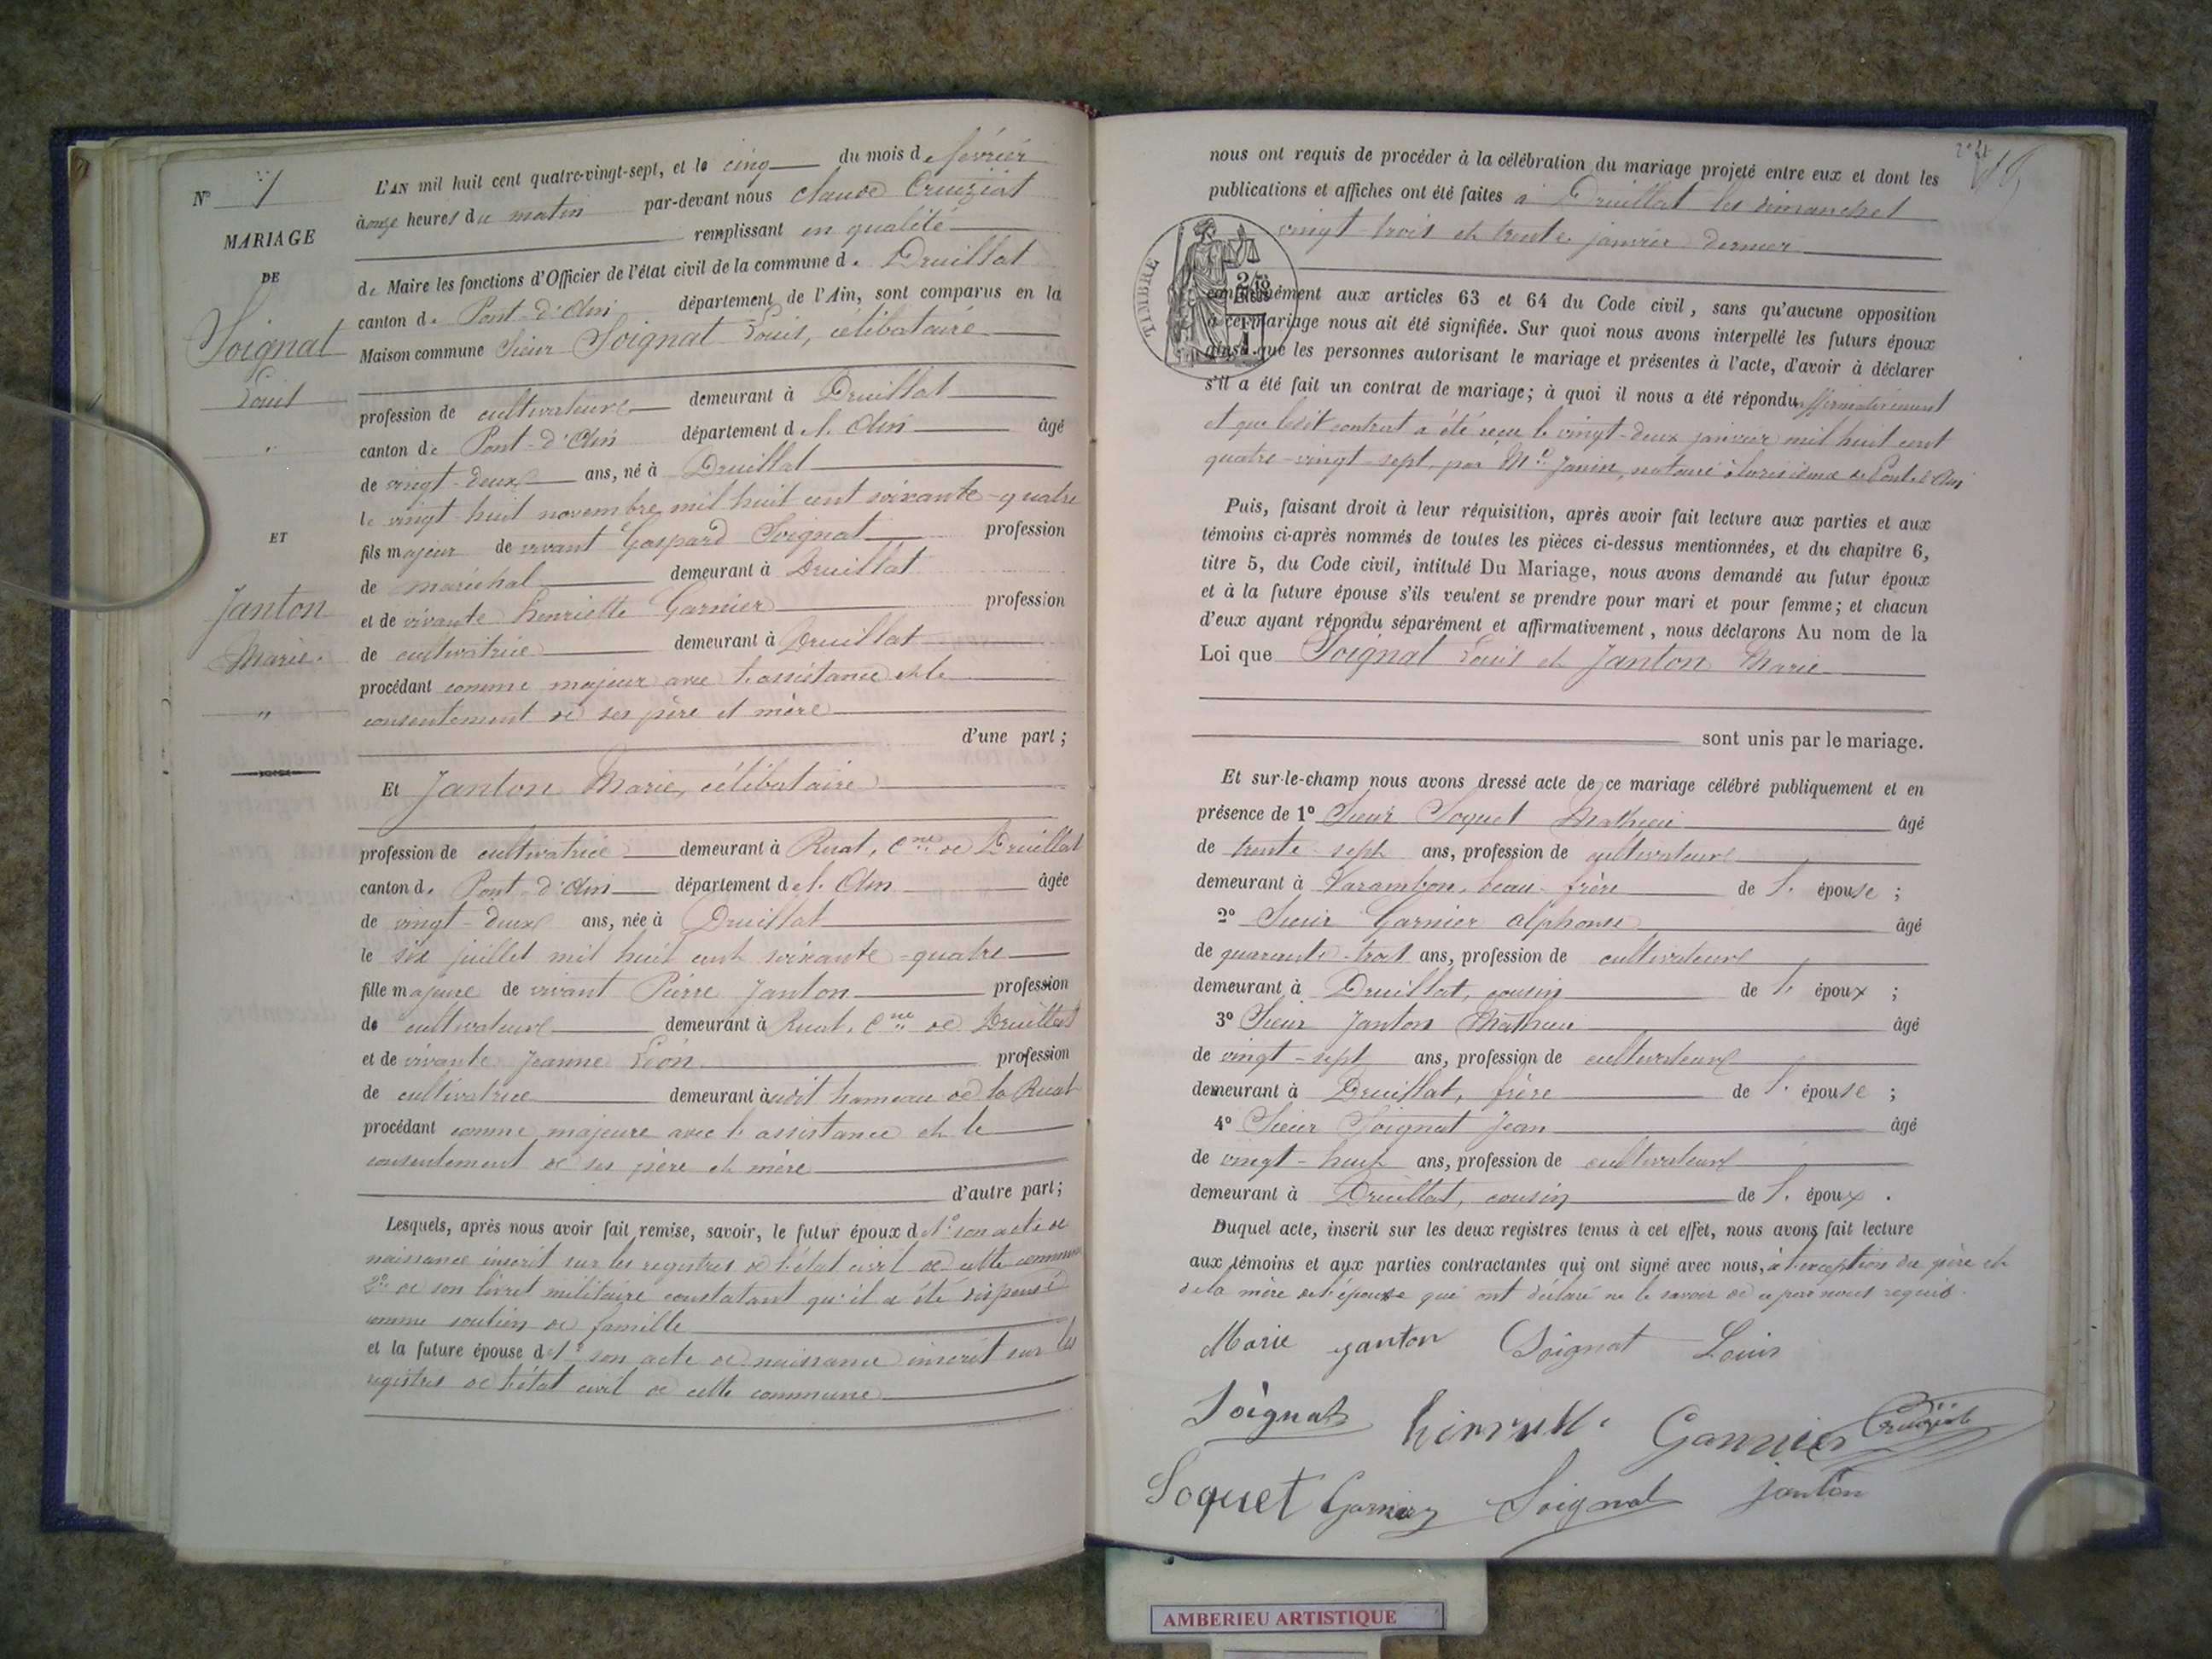 N° 7
MARIAGE
DE
Soignat
Louis
"
ET
Janton
Marie.
"
L'AN mil huit cent quatre-vingt-sept, et le cinq du mois de février
à onze heures du matin par-devant nous Claude Cruziat
remplissant en qualité
de Maire les fonctions d'Officier de l'état civil de la commune de Druillat
canton de Pont-d'Ain département de l'Ain, sont comparus en la
Maison commune Sieur Soignat Louis, célibataire
profession de cultivateur demeurant à Druillat
canton de Pont-d'Ain département de l'Ain âgé
de vingt-deux ans, né à Druillat
le vingt-huit novembre mil huit cent soixante-quatre
fils majeur de vivant Gaspard Soignat profession
de maréchal demeurant à Druillat
et de vivante henriette Garnier profession
de cultivatrice demeurant à Druillat
procédant comme majeur avec l'assistance et le
consentement de ses père et mère
d'une part;
Et Janton Marie, célibataire
profession de cultivatrice demeurant à Ruat, Cne de Druillat
canton de Pont-d'Ain département de l'Ain âgée
de vingt-deux ans, née à Druillat
le six juillet mil huit cent soixante-quatre
fille majeure de vivant Pierre Janton profession
de cultivateur demeurant à Ruat, Cne de Druillat
et de vivante Jeanne Léon profession
de cultivatrice demeurant audit hameau de la Ruat
procédant comme majeure avec l'assistance et le
consentement de ses père et mère
d'autre part;
Lesquels, après nous avoir fait remise, savoir, le futur époux de 1° son acte de
naissance inscrit sur les registres de l'état civil de cette commune
2° de son livret militaire constatant qu'il a été dispensé
comme soutien de famille
et la future épouse de 1° son acte de naissance inscrit sur les
registres de l'état civil de cette commune
nous ont requis de procéder à la célébration du mariage projeté entre eux et dont les
publications et affiches ont été faites à Druillat les dimanches
vingt-trois et trente janvier dernier
TIMBRE
conformément aux articles 63 et 64 du Code civil, sans qu'aucune opposition
à ce mariage nous ait été signifiée. Sur quoi nous avons interpellé les futurs époux
ainsi que les personnes autorisant le mariage et présentes à l'acte, d'avoir à déclarer
s'il a été fait un contrat de mariage; à quoi il nous a été répondu affirmativement
et que ledit contrat a été reçu le vingt-deux janvier mil huit cent
quatre-vingt-sept, par Me Janin, notaire à la résidence de Pont-d'Ain
Puis, faisant droit à leur réquisition, après avoir fait lecture aux parties et aux
témoins ci-après nommés de toutes les pièces ci-dessus mentionnées, et du chapitre 6,
titre 5, du Code civil, intitulé Du Mariage, nous avons demandé au futur époux
et à la future épouse s'ils veulent se prendre pour mari et pour femme; et chacun
d'eux ayant répondu séparément et affirmativement, nous déclarons Au nom de la
Loi que Soignat Louis et Janton Marie
sont unis par le mariage.
Et sur-le-champ nous avons dressé acte de ce mariage célébré publiquement et en
présence de 1° Sieur Soquet Mathieu âgé
de trente-sept ans, profession de cultivateur
demeurant à Varambon, beau-frère de l'épouse;
2° Sieur Garnier Alphonse âgé
de quarante-trois ans, profession de cultivateur
demeurant à Druillat, cousin de l'époux;
3° Sieur Janton Mathieu âgé
de vingt-sept ans, profession de cultivateur
demeurant à Druillat, frère de l'épouse;
4° Sieur Soignat Jean âgé
de vingt-huit ans, profession de cultivateur
demeurant à Druillat, cousin de l'époux.
Duquel acte, inscrit sur les deux registres tenus à cet effet, nous avons fait lecture
aux témoins et aux parties contractantes qui ont signé avec nous, à l'exception du père et
de la mère de l'épouse qui ont déclaré ne le savoir de ce par nous requis.
Marie Janton Soignat Louis
Soignat henriette Garnier Cruziat
Soquet Garnier Soignat Janton
AMBERIEU ARTISTIQUE